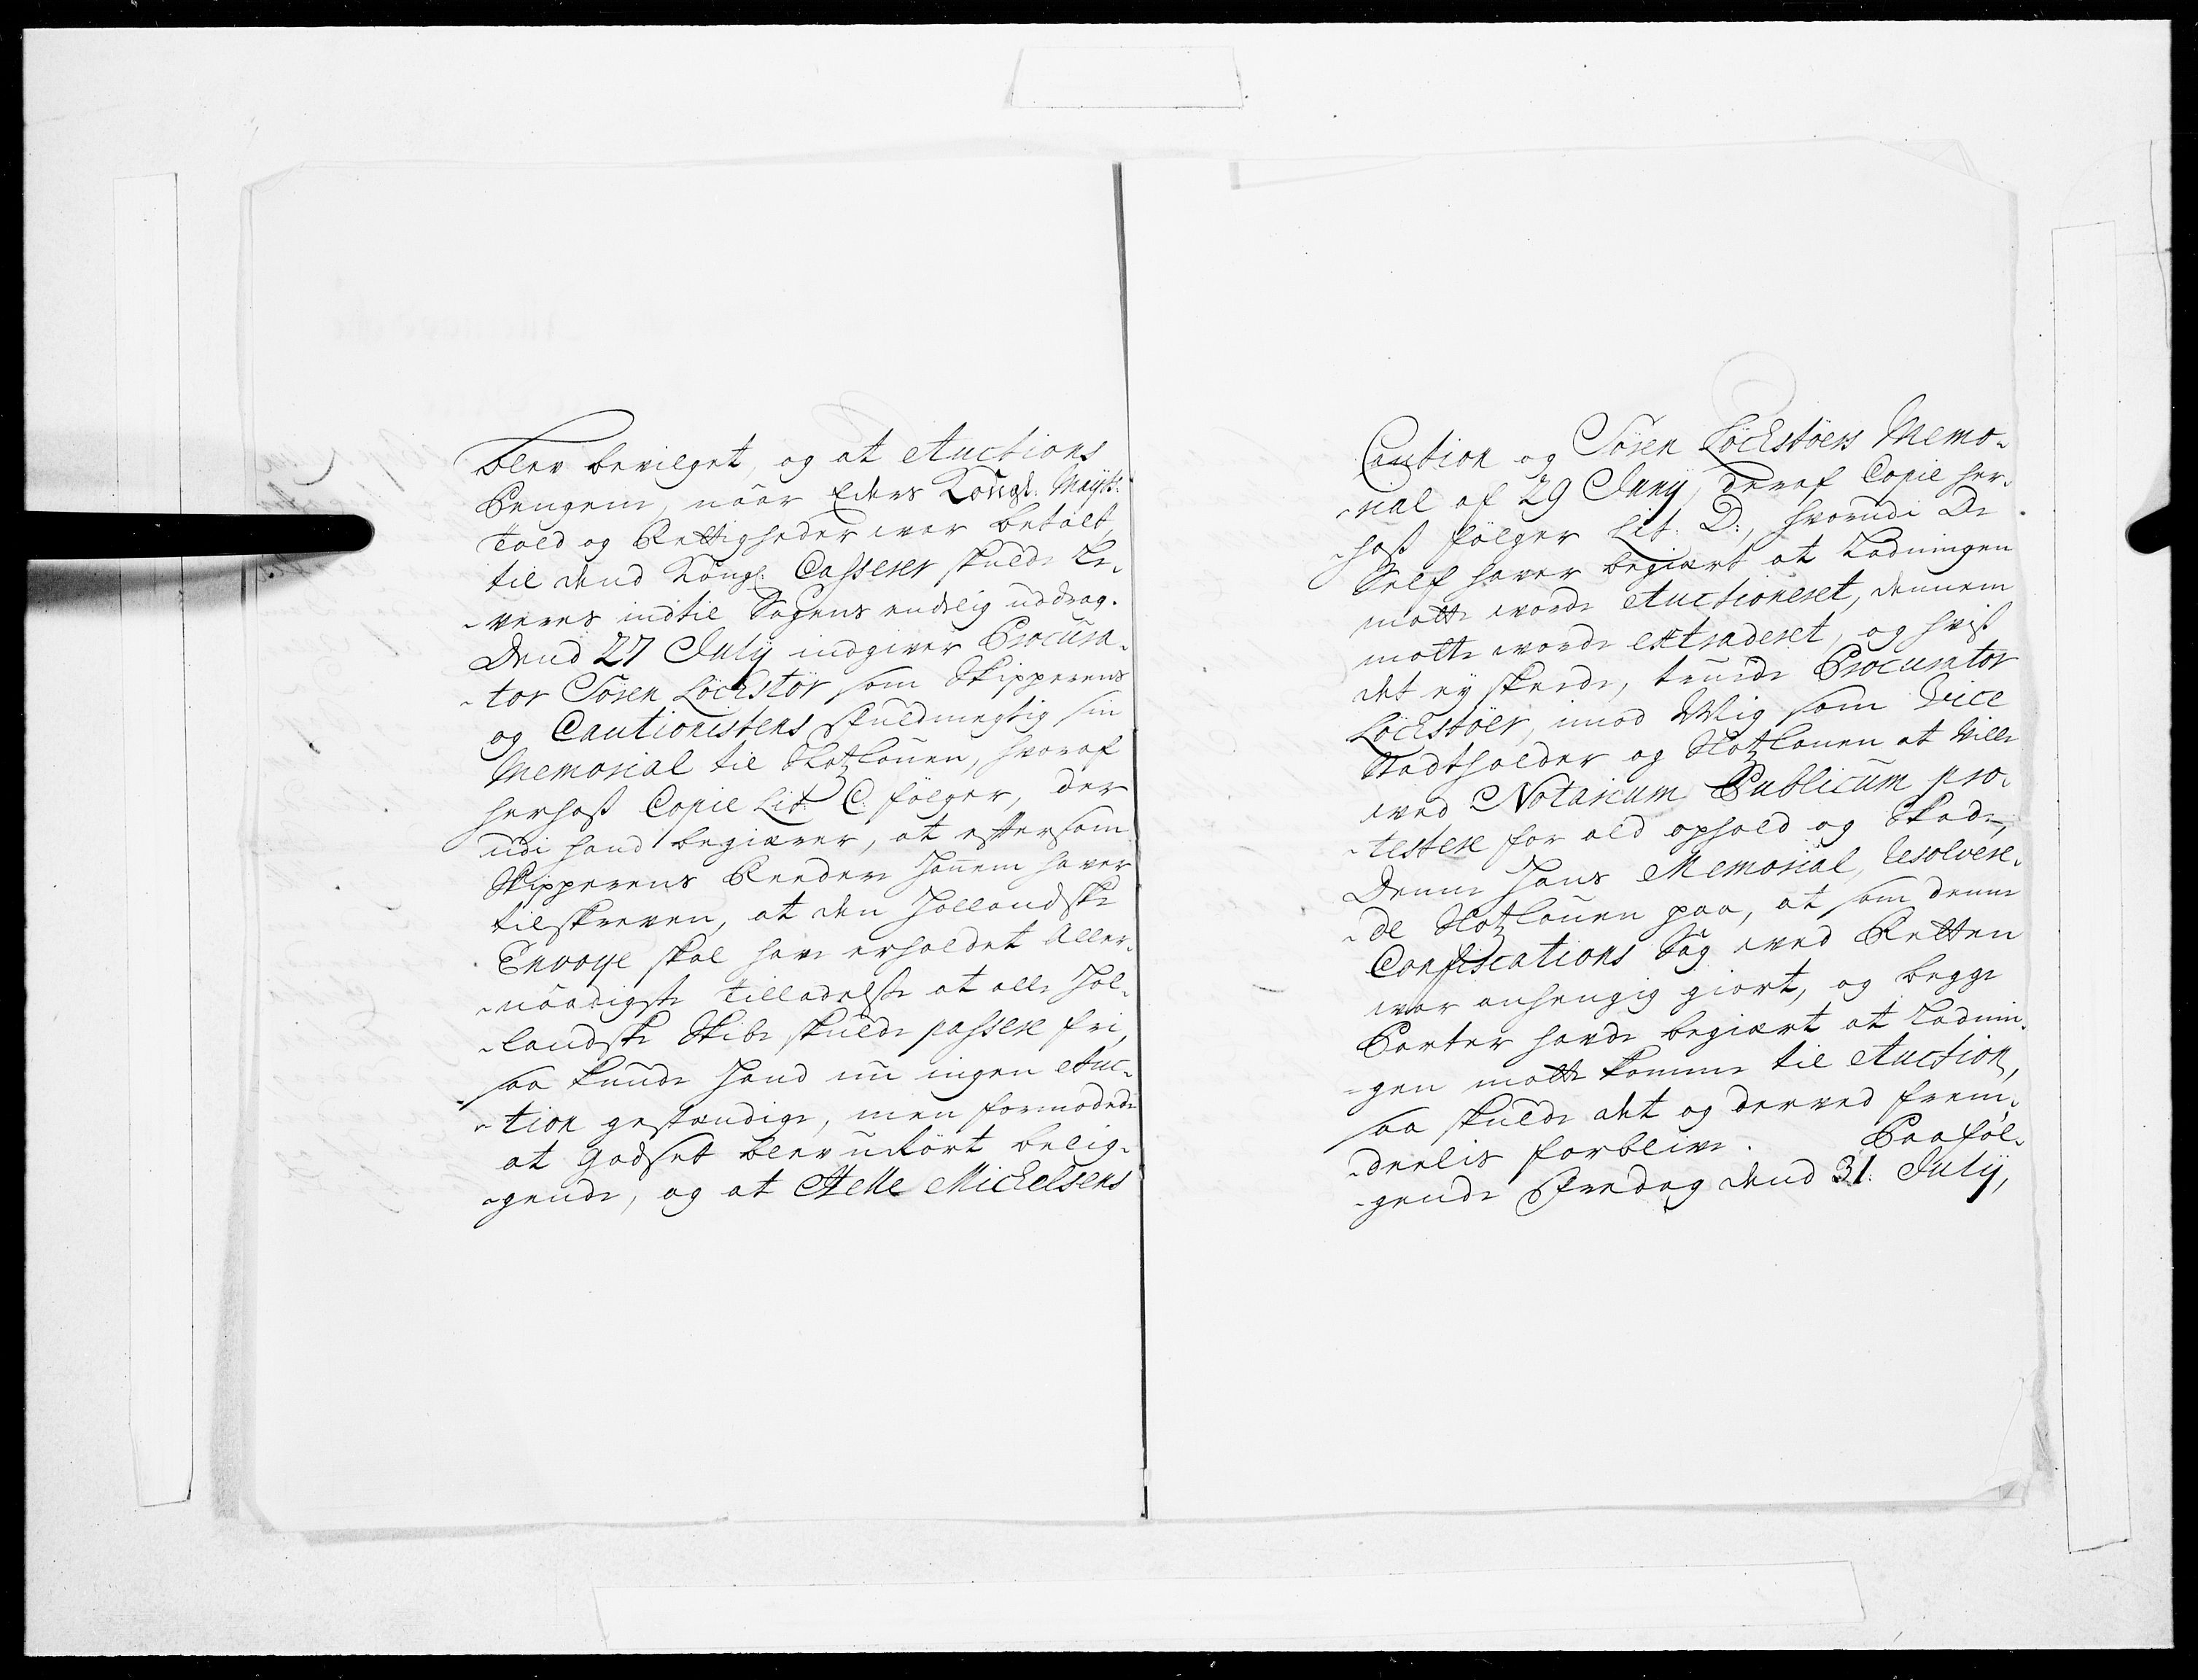 blev bevilget, og at Auctions
Pengene, naar Eders Kongl: Mayts:
Told og Rettigheder var betalt,
til dend Kongl: Casserer skulde Le-
-veres indtil Sagens endelig uddrag.
Dend 27 July indgiver Procura-
-tor Sören Löchstör som Skipperens
og Cautionistens fuldmegtig sin
Memorial til Slotzlouen, hvoraf
herhoß Copie Lit: C: følger, der
udi hand begiærer, at eftersom
Skipperens Reedere hannem haver
tilskreven, at den Hollandske
Envoye skal have erholdet Aller-
-naadigste tilladelse at alle Hol-
-landske Skibe skulde passere fri,
saa kunde Hand nu ingen Auc-
-tion gestendige, men formodede
at Godset blev uRört belig-
-gende, og at Helle Michelsens
Caution og Sören Löchstöers Memo-
-rial af 29 Juny, deraf Copie her-
-hoß følger Lit: D:, hvorudi De
Self haver begiært at Ladningen
motte vorde Auctioneret, dennem
motte vorde extraderet, og hviß
det ey skeede, truede Procurator
Löchstöer, imod Mig som Vice
Stadtholder og Slotzlouen at Ville
ved Notarium Publicum pro-
-testere for ald ophold og Skade,
Denne Hans Memorial, Resolvere-
-de Slotzlouen paa, at som denne
Confiscations Sag ved Retten
var anhengig giort, og begge
Parter havde begiært at Ladnin-
-gen motte komme til Auction,
saa skulde det og derved frem-
-deelis forblive. Paaføl-
-gende Fredag dend 31. July,